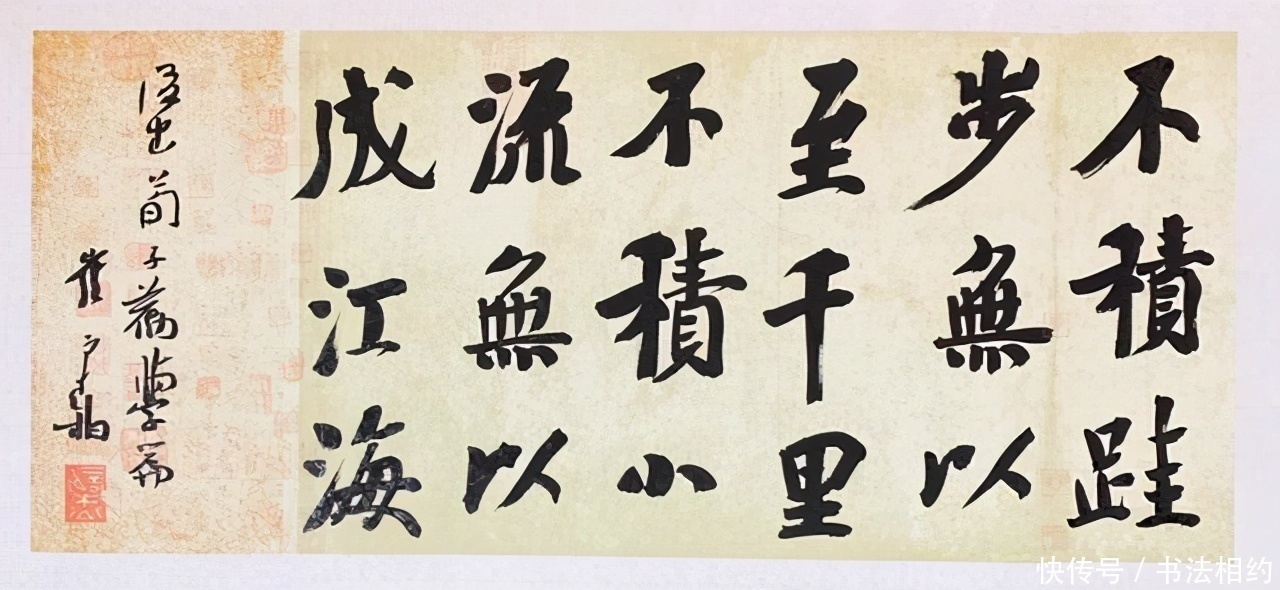 不積跬
步無以
至千里
不積小
流無以
成江海
荀子勸學篇
崔
快传号 / 书法相约